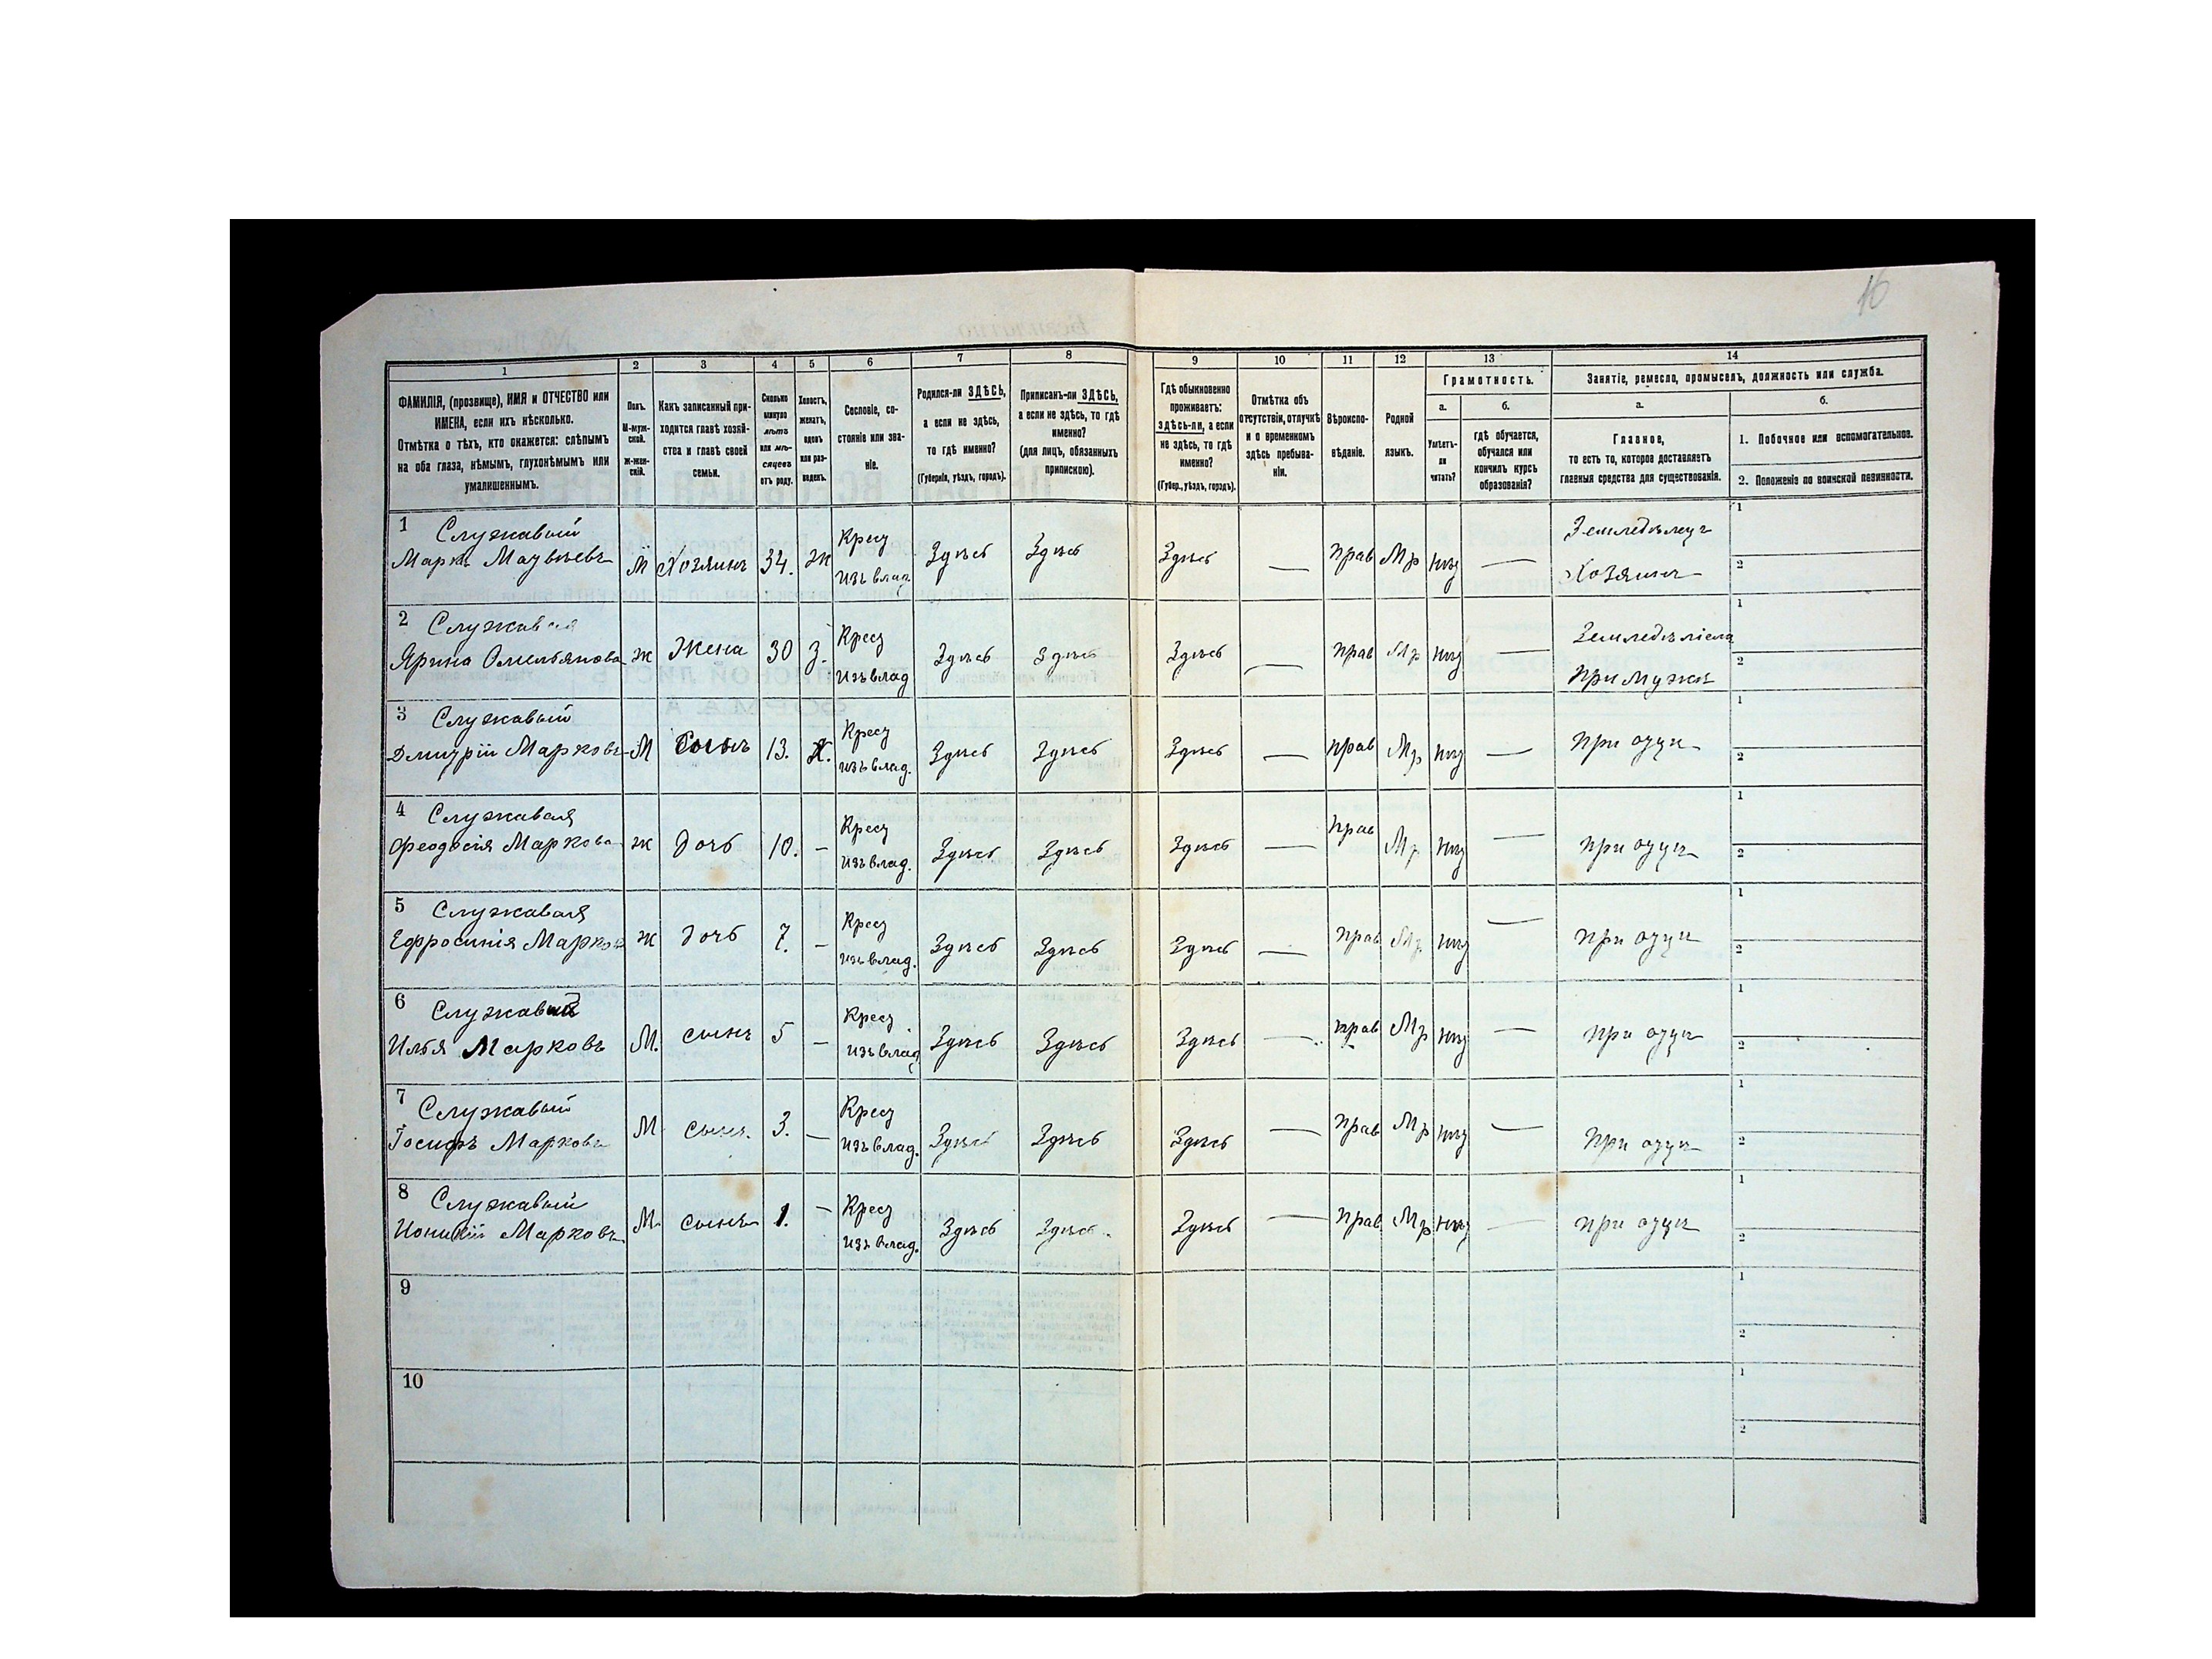 16
1 2 3 4 5 6 7 8 9 10 11 12 13 14
ФАМИЛІЯ, (прозвище), ИМЯ и ОТЧЕСТВО или ИМЕНА, если ихъ нѣсколько.
Отмѣтка о тѣхъ, кто окажется: слѣпымъ на оба глаза, нѣмымъ, глухонѣмымъ или умалишеннымъ.
Полъ.
М-мужской.
Ж-женскій.
Какъ записанный приходится главѣ хозяйства и главѣ своей семьи.
Сколько минуло лѣтъ или мѣсяцевъ отъ роду.
Холостъ, женатъ, вдовъ или разведенъ.
Сословіе, состояніе или званіе.
Родился-ли ЗДѢСЬ, а если не здѣсь, то гдѣ именно?
(Губернія, уѣздъ, городъ).
Приписанъ-ли ЗДѢСЬ, а если не здѣсь, то гдѣ именно?
(для лицъ, обязанныхъ припискою).
Гдѣ обыкновенно проживаетъ: здѣсь-ли, а если не здѣсь, то гдѣ именно?
(Губер., уѣздъ, городъ).
Отмѣтка объ отсутствіи, отлучкѣ и о временномъ здѣсь пребываніи.
Вѣроисповѣданіе.
Родной языкъ.
Грамотность.
а.
Умѣетъ-ли читать?
б.
гдѣ обучается, обучался или кончилъ курсъ образованія?
Занятіе, ремесло, промыселъ, должность или служба.
а.
Главное,
то есть то, которое доставляетъ главныя средства для существованія.
б.
1. Побочное или вспомогательное.
2. Положеніе по воинской повинности.
1 Служавый Крест Земледѣлецъ 1
Марко Матвѣевъ М Хозяинъ 34. Ж изъ влад Здѣсь Здѣсь Здѣсь — прав Мр нѣт — Хозяинъ 2
2 Служавая Крест 1
Ярина Омельянова Ж Жена 30 З. изъ влад Здѣсь Здѣсь Здѣсь — прав Мр нѣт — При мужѣ 2
3 Служавый Крест 1
Дмитрій Марковъ М Сынъ 13. Х. изъ влад. Здѣсь Здѣсь Здѣсь — прав Мр нѣт — При отцѣ 2
4 Служавая Крест 1
Феодосія Маркова Ж Дочь 10. — изъ влад. Здѣсь Здѣсь Здѣсь — прав Мр нѣт — при отцѣ 2
5 Служавая Крест 1
Ефросинія Маркова Ж Дочь 7. — изъ влад. Здѣсь Здѣсь Здѣсь — прав Мр нѣт — при отцѣ 2
6 Служавый Крест 1
Илья Марковъ М. сынъ 5 — изъ влад Здѣсь Здѣсь Здѣсь — прав Мр нѣт — при отцѣ 2
7 Служавый Крест 1
Іосифъ Марковъ М сынъ. 3. — изъ влад. Здѣсь Здѣсь Здѣсь — прав Мр нѣт — При отцѣ 2
8 Служавый Крест 1
Іоникій Марковъ М. сынъ 1. — изъ влад. Здѣсь Здѣсь Здѣсь — прав Мр нѣт — при отцѣ 2
9 1
2
10 1
2